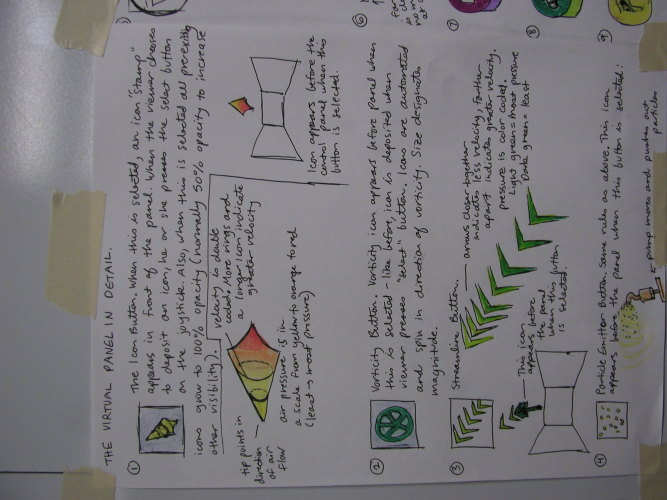 THE VIRTUAL PANEL IN DETAIL.
① The Icon Button. When this is selected, an icon "stamp"
appears in front of the panel. When the viewer chooses
to deposit an icon, he or she presses the select button
on the joystick. Also, when this is selected all pre-existing
icons grow to 100% opacity (normally 50% opacity to increase
other visibility).
velocity is double
coded. More rings and
a longer icon indicate
greater velocity
tip points in
direction
of air
flow
air pressure is in
a scale from yellow to orange to red
(least → most pressure)
Icon appears before the
control panel when this
button is selected.
② Vorticity Button. Vorticity icon appears before panel when
this is selected - like before, icon is deposited when
viewer presses "select" button. Icons are automated
and spin in direction of vorticity. Size designates
magnitude.
③ Streamline Button.
arrows closer together
indicates less velocity, farther
apart indicates greater velocity.
pressure is color coded.
Light green = most pressure
Dark green = least
This icon
appears before
the panel
when this button
is selected.
④ Particle Emitter Button. Same rules as above. This icon
appears before the panel when this button is selected:
pump moves and pushes out
particles
⑥
⑦
⑧
⑨